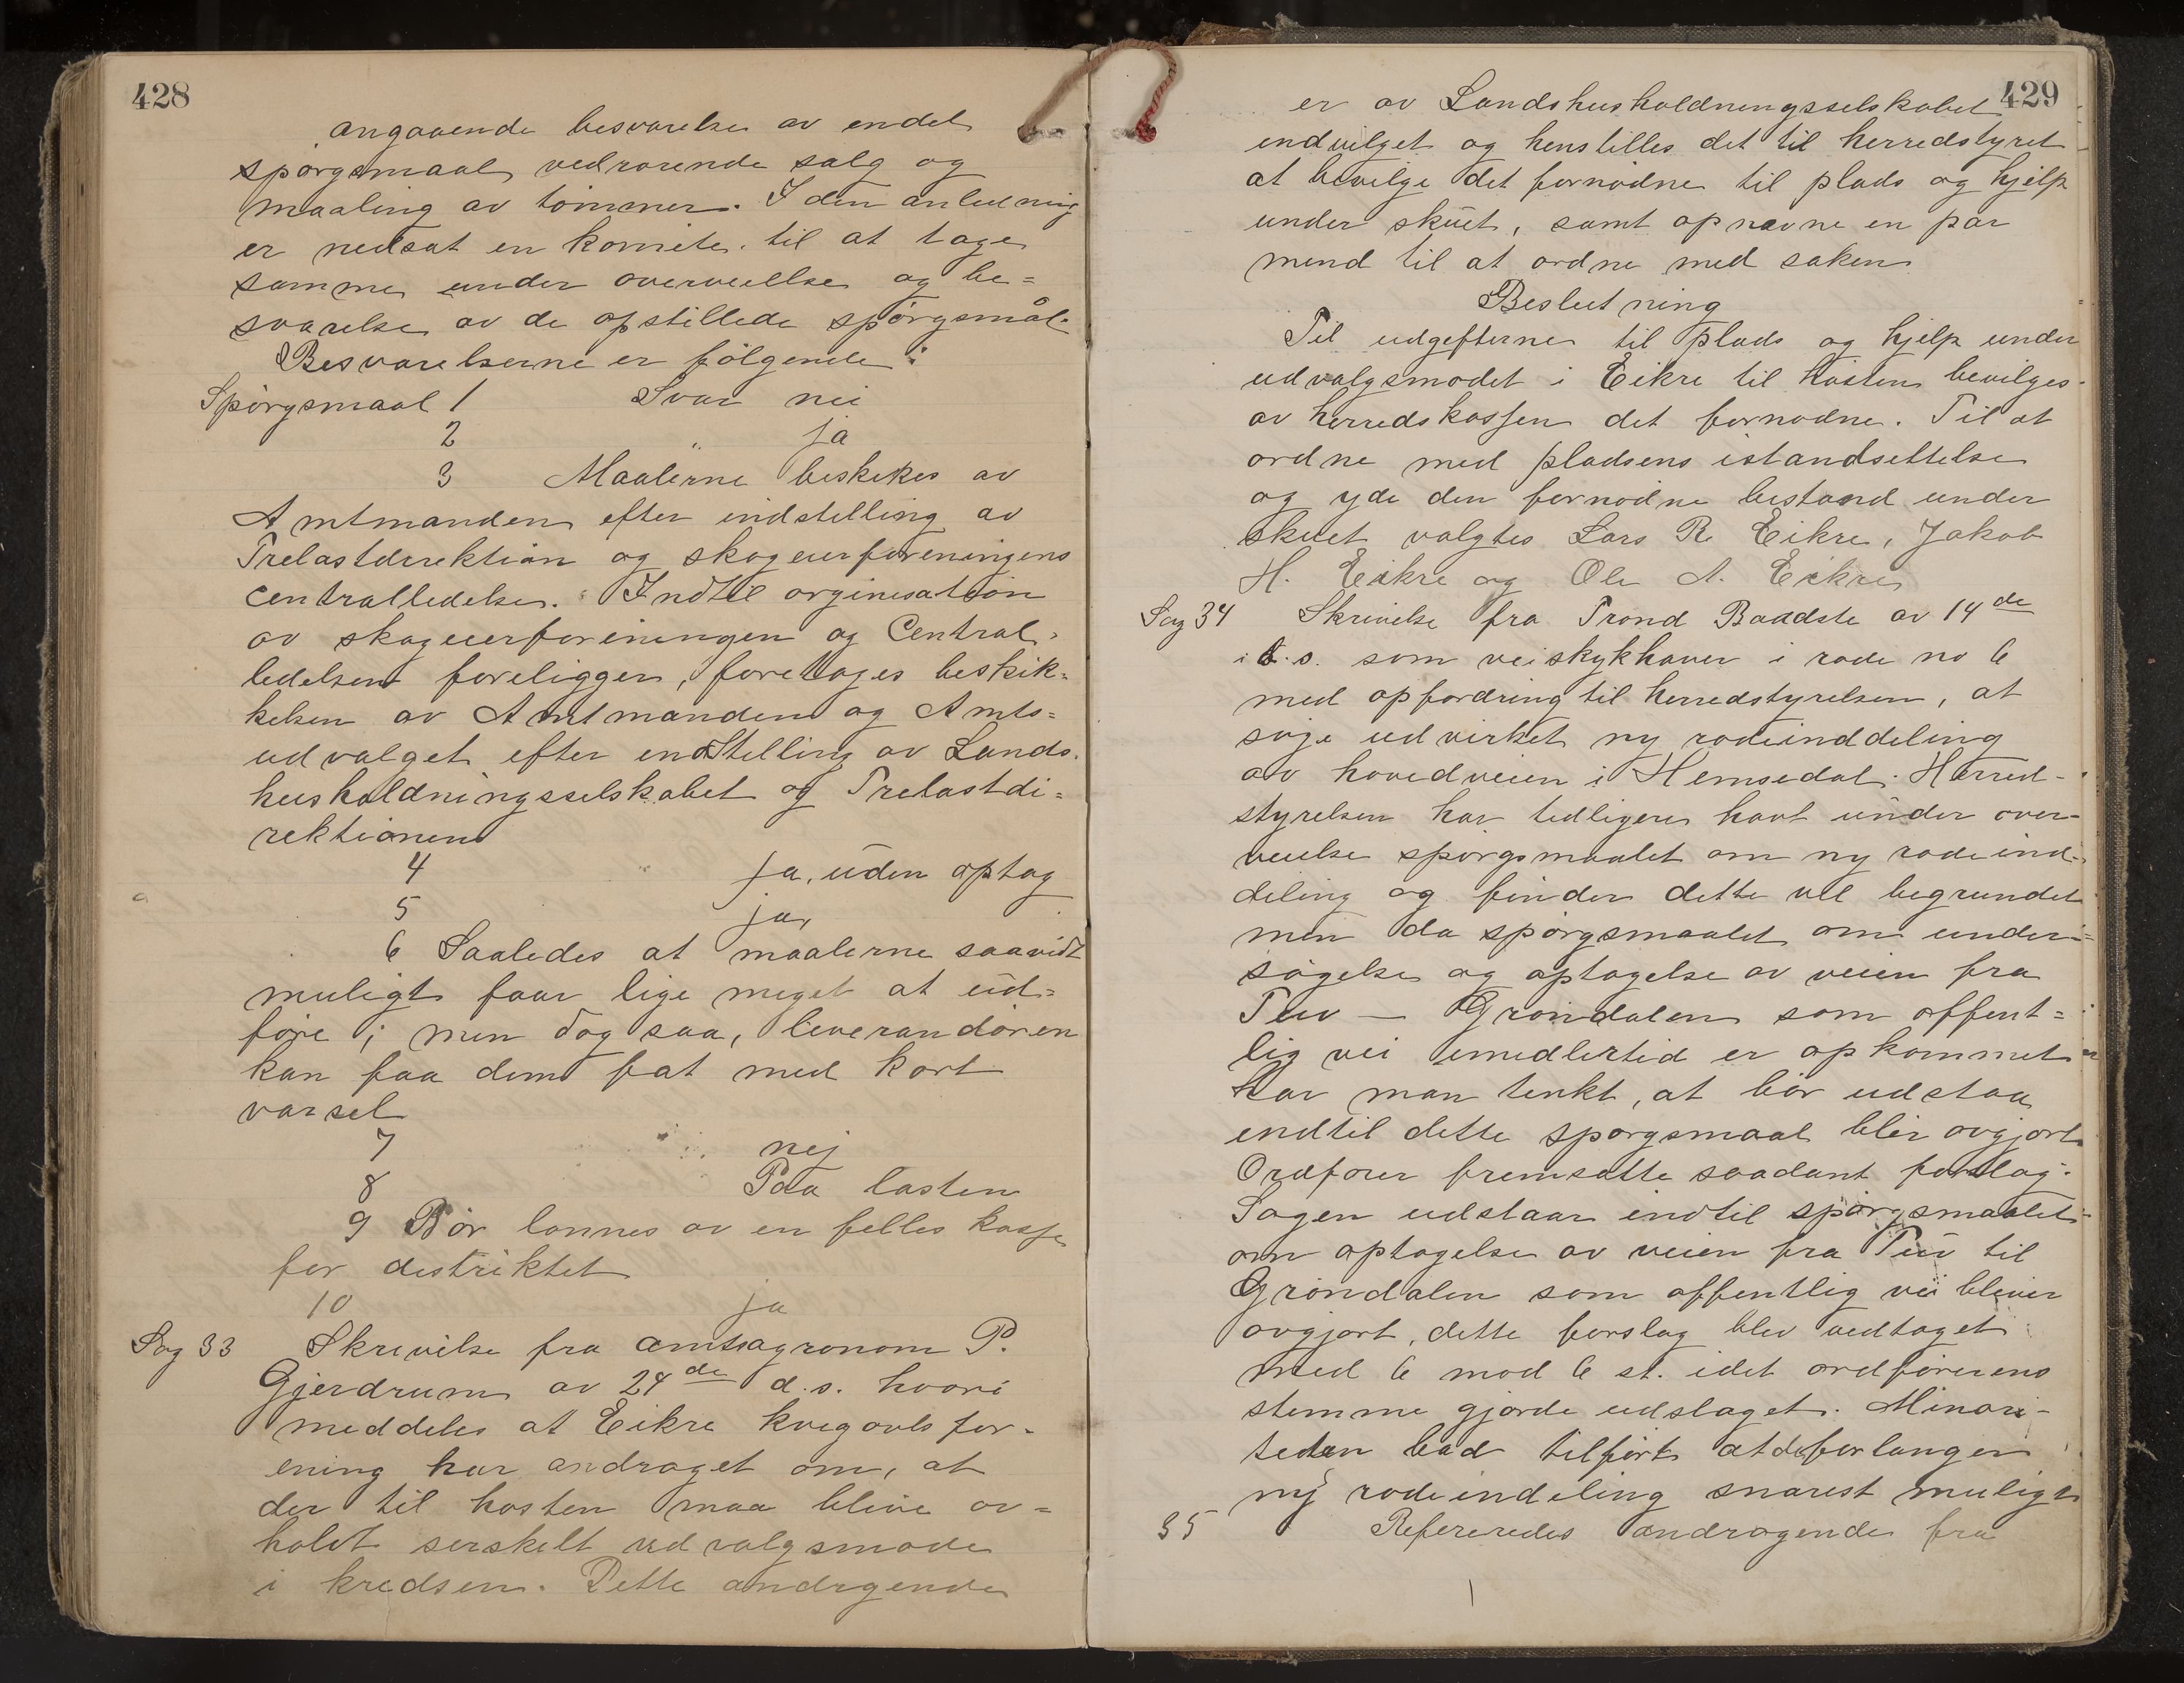 428
angaaende besvarelse av endel
spørgsmaal vedrørende salg og
maaling av tømmer. I den anledning
er nedsat en komite til at tage
samme under overveielse og be=
svarelse av de opstillede spørgsmål
Besvarelserne er følgende:
Spørgsmaal 1 Svar nei
2 " ja
3 Maalerne beskikes av
Amtmanden efter indstilling av
Trelastdirektion og skogeierforeningens
centralledelse. Indtil orginisation
av skogeierforeningen og Central=
ledelsen foreligger, foretages beskik=
kelsen av Amtmanden og Amts=
udvalget efter indstilling av Lands
husholdningsselskabet og Trelastdi=
rektionen
4 Ja, uden optag
5 ja,
6 Saaledes at maalerne saavidt
muligt faar lige meget at ud=
føre; men dog saa, leverandøren
kan faa dem fat med kort
varsel
7 nej
8 Paa lasten
9 Bør lønnes av en felles kasse
for distriktet
10 ja
Sag 33 Skrivelse fra amtsagronom P.
Gjerdrum av 24de d.s. hvori
meddeles at Eikre kvegavlsfor-
ening har andraget om, at
der til høsten maa blive av=
holdt serskelt udvalgsmøde
i kredsen. Dette andrgende
429
er av Landshusholdningsselskabet
indvilget og henstilles det til herredstyret
at bevilge det fornødne til plads og hjelp
under skuet, samt opnævne en par
mend til at ordne med saken
Beslutning
Til udgifterne til plads og hjelp under
udvalgsmødet i Eikre til høsten bevilges
av herredskassen det fornødne. Til at
ordne med pladsens istandsettelse
og yde den fornødne bestand under
skuet valgtes Lars R Eikre, Jakob
H. Eikre og Ole A. Eikre
Sag 34 Skrivelse fra Trond Baadste av 14de
som veiskykhaver i rode no 6
med opfordring til herredstyrelsen, at
søge udvirket ny rodeinddeling
av hovedveien i Hemsedal. Herred-
styrelsen har tidligere havt under over-
veielse spørgsmaalet om ny rodeind-
deling og finder dette vel begrundet
men da spørgsmaalet om under=
søgelse og optagelse av veien fra
Tuv — Grøndalen som offent=
lig vei imidlertid er opkommet
har man tenkt, at bør udstaa
indtil dette spørgsmaal blir avgjort
Ordfører fremsatte saadant forslag:
Sagen udstaar indtil spørgsmaalet
om optagelse av veien fra Tuv til
Grøndalen som offentlig vei bliver
avgjort, dette forslag blev vedtaget
med 6 mod 6 st. idet ordførerens
stemme gjorde udslaget. Minori-
teten bad tilført at de forlanger
ny rodeindeling snarest muligt
35 Refereredes andragende fra